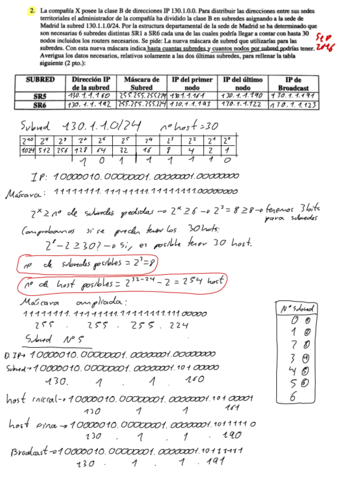 2. La compañía X posee la clase B de direcciones IP 130.1.0.0. Para distribuir las direcciones entre sus sedes
territoriales el administrador de la compañía ha dividido la clase B en subredes asignando a la sede de
Madrid la subred 130.1.1.0/24. Por la estructura departamental de la sede de Madrid se ha determinado que
son necesarias 6 subredes distintas SR1 a SR6 cada una de las cuales podría llegar a contar con hasta 30
nodos incluidos los routers necesarios. Se pide: La nueva máscara de subred que utilizarán para las
subredes. Con esta nueva máscara indica hasta cuantas subredes y cuantos nodos por subred podrías tener.
Averigua los datos necesarios, relativos solamente a las dos últimas subredes, para rellenar la tabla
siguiente (2 pto.):
SUBRED Dirección IP de la subred Máscara de Subred IP del primer nodo IP del último nodo IP de Broadcast
SR5 130.1.1.160 255.255.255.224 130.1.1.161 130.1.1.190 130.1.1.191
SR6 130.1.1.192 255.255.255.224 130.1.1.193
Subred 130.1.1.0/24 nº host=30
2¹⁰ 2⁹ 2⁸ 2⁷ 2⁶ 2⁵ 2⁴ 2³ 2² 2¹ 2⁰
1024 512 256 128 64 32 16 8 4 2 1
1 0 1 1 1 1 1 0
IP: 10000010.00000001.00000001.00000000
Máscara: 11111111.11111111.11111111.00000000
2ˣ ≥ nº de subredes pedidas → 2ˣ ≥ 6 → 2³ = 8 ≥ 8 → tenemos 3 bits
para subredes
Comprobamos si se pueden tener los 30 hots.
2⁵ - 2 ≥ 30? → Si, es posible tener 30 host.
nº de subredes posibles = 2³ = 8
nº de host posibles = 2³²⁻²⁴ - 2 = 254 host
Máscara ampliada:
11111111.11111111.11111111.11100000
255 . 255 . 255 . 224
Subred Nº 5
D.IP → 10000010.00000001.00000001.00000000
Subred → 10000010.00000001.00000001.10100000
130. 1 . 1 . 160
host inicial → 10000010.00000001.00000001.10100001
130 1 1 161
host final → 10000010.00000001.00000001.10111110
130 . 1 . 1 . 190
Broadcast → 10000010.00000001.00000001.10111111
130 . 1 . 1 . 191
Nº Subred
0
1
2
3
4
5
6